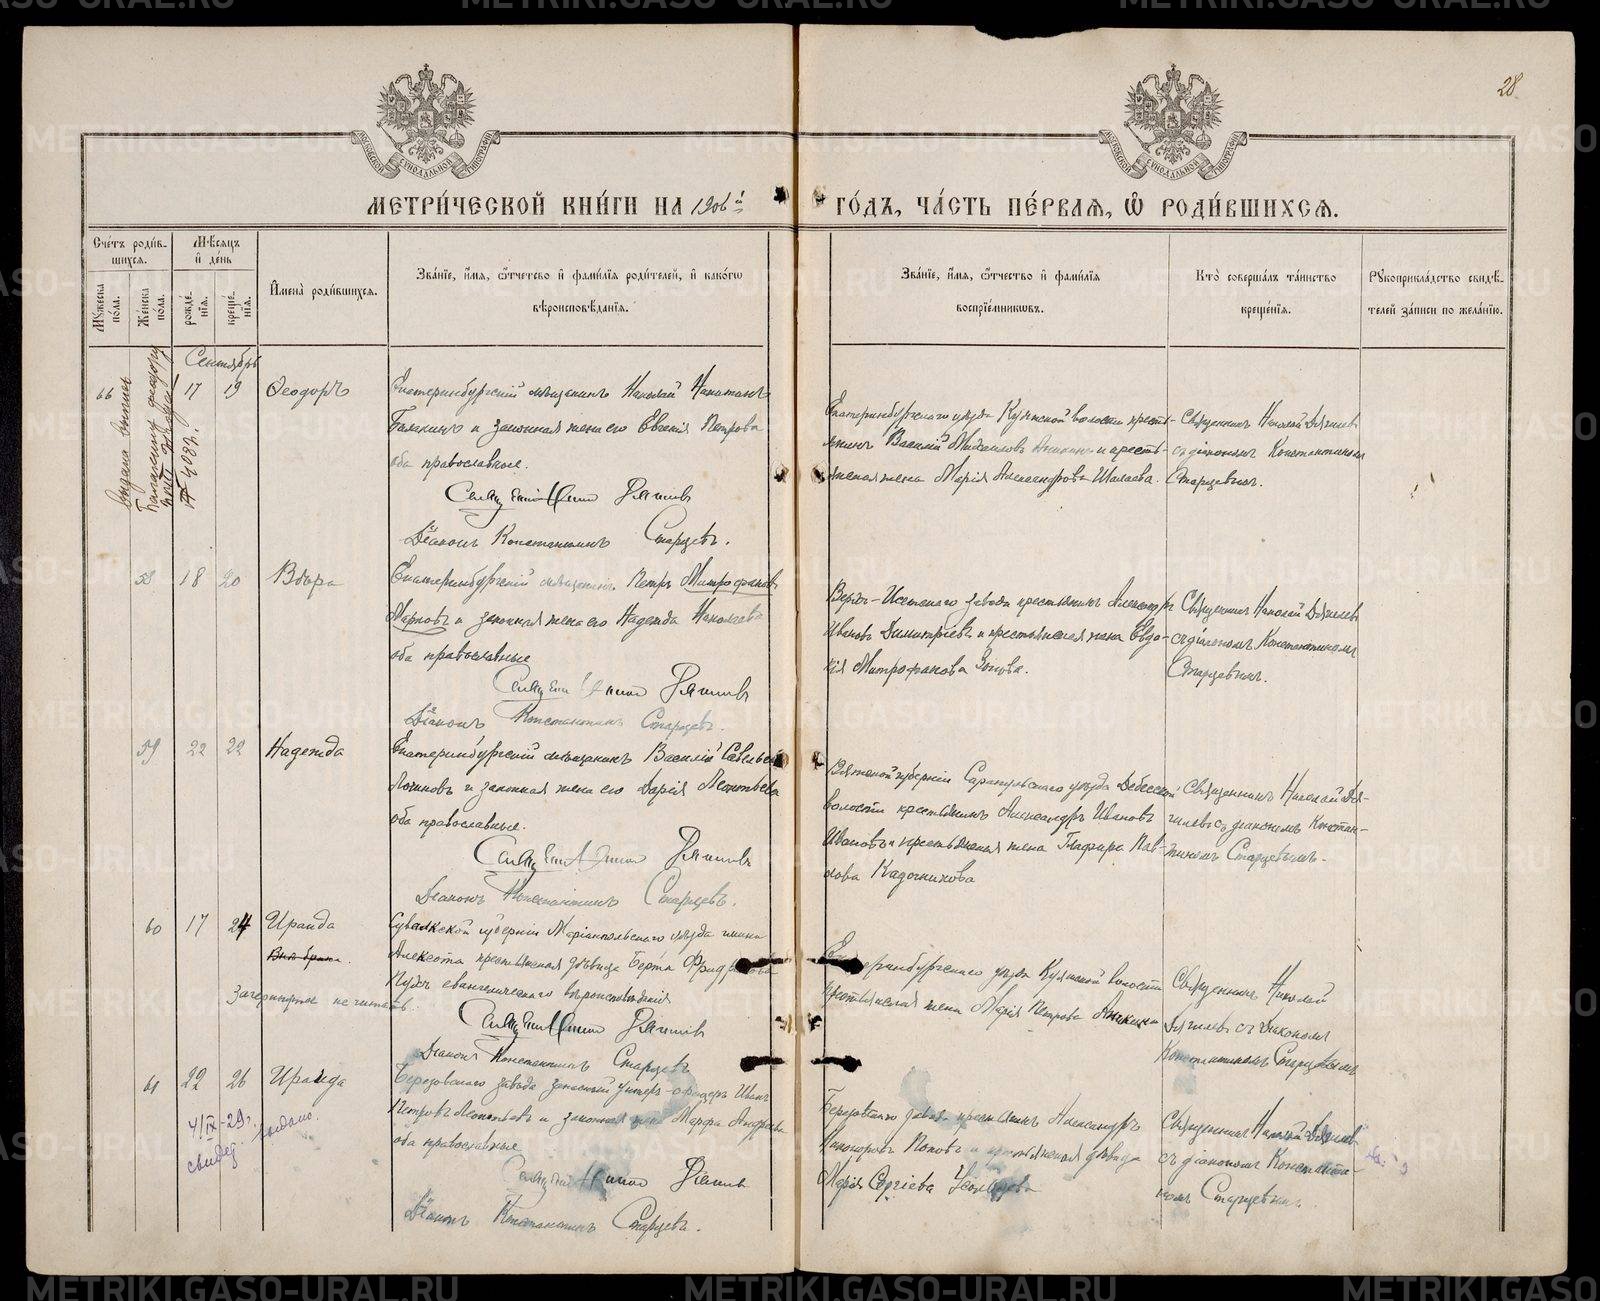 METRIKI.GASO-URAL.RU
28
МЕТРИЧЕСКОЙ КНИГИ НА 1906й ГОДЪ, ЧАСТЬ ПЕРВАЯ, Ѡ РОДИВШИХСЯ.
Счетъ родившихся.
Мужеска пола.
Женска пола.
Мѣсяцъ и день
рожденія.
крещенія.
Имена родившихся.
Званіе, имя, ѿчетсво и фамилія родителей, и какогѡ вѣроисповѣданія.
Званіе, имя, ѿчество и фамилія воспріемниковъ.
Кто совершалъ таинство крещенія.
Рукоприкладство свидѣтелей записи по желанію.
Сентябрь
66 17 19 Ѳеодоръ
Екатеринбургскій мѣщанинъ Николай
и законная жена его Евгенія Петрова
оба православные.
Діаконъ Константинъ Старцевъ.
Екатеринбургскаго уѣзда волости кресть-
янинъ Василій Михаиловъ и кресть-
янская жена Марія Александрова
Священникъ Николай
съ діакономъ Константиномъ
Старцевымъ.
58 18 20 Вѣра
Екатеринбургскій мѣщанинъ Петръ Митрофановъ
Марковъ и законная жена его Надежда Николаева
оба православные
Діаконъ Константинъ Старцевъ.
Верхъ-Исетскаго завода крестьянинъ Александръ
Ивановъ Димитріевъ и крестьянская жена Евдо-
кія Митрофанова Зотова.
Священникъ Николай
съ діакономъ Константиномъ
Старцевымъ.
59 22 22 Надежда
Екатеринбургскій мѣщанинъ Василій Савельевъ
Логиновъ и законная жена его Дарія Леонтьева
оба православные.
Діаконъ Константинъ Старцевъ.
Вятской губерніи Сарапульскаго уѣзда Дебесской
волости крестьянинъ Александръ Ивановъ
Ивановъ и крестьянская жена Глафира Пав-
лова Кадочникова
Священникъ Николай Дя-
гилевъ съ діакономъ Констан-
тиномъ Старцевымъ.
60 17 24 Ираида
Внѣ брака.
Зачеркнутое не читать.
Сувалкской губерніи Маріампольскаго уѣзда гмины
Алексота крестьянская дѣвица Берта
евангелическаго вѣроисповѣданія
Діаконъ Константинъ Старцевъ
Екатеринбургскаго уѣзда волости
крестьянская жена Марія Петрова Аникина
Священникъ Николай
Дягилевъ съ діакономъ
Константиномъ Старцевымъ
61 22 26 Ираида
4/IX-29г. выдано.
свидет.
Березовскаго завода запасный унтеръ-офицеръ Иванъ
Петровъ Леонтьевъ и законная жена Марфа Андреева
оба православные
Діаконъ Константинъ Старцевъ.
Березовскаго завода крестьянинъ Александръ
Никаноровъ Поповъ и крестьянская дѣвица
Марія Сергіева
Священникъ Николай Дягилевъ
съ діакономъ Константи-
номъ Старцевымъ.